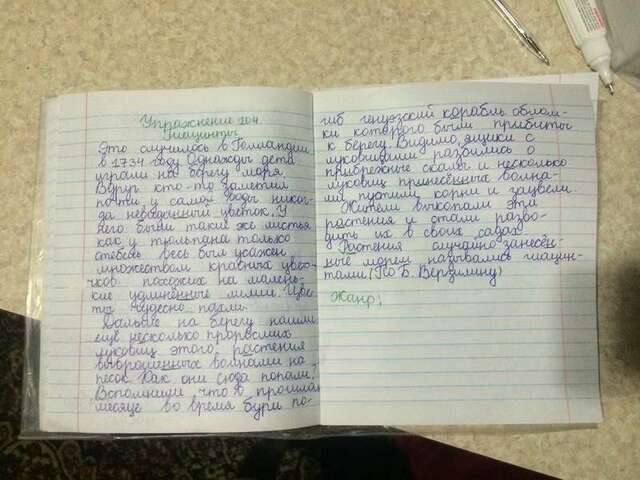 Упражнение 104
Гиацинты
Это случилось в Голландии
в 1734 году. Однажды дети
играли на берегу моря.
Вдруг кто-то заметил
почти у самой воды никог-
да невиданный цветок. У
него были такие же листья
как у тюльпана только
стебель весь был усажен
множеством красных цвето-
чков похожих на малень-
кие удлинённые лилии. Цве-
ты чудесно пахли.
Дальше на берегу нашли
ещё несколько проросших
луковиц этого растения
выброшенных волнами на
песок. Как они сюда попали?
Вспомнили что в прошлом
месяце во время бури по-
гиб генуэзский корабль облом-
ки которого были прибиты
к берегу. Видимо ящики с
луковицами разбились о
прибрежные скалы и несколько
луковиц принесённых волна-
ми пустили корни и зацвели.
Жители выкопали эти
растения и стали разво-
дить их в своих садах.
Растения случайно занесён-
ные морем назывались гиацин-
тами (По Б. Верзилину)
Жанр: